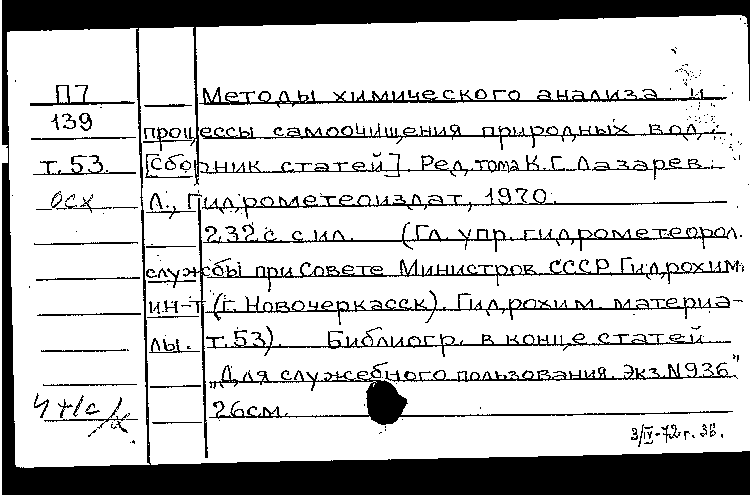 П7 Методы химического анализа и
139 процессы самоочищения природных вод.
т.53. [Сборник статей]. Ред. тома К.Г. Лазарев.
осх Л., Гидрометеоиздат, 1970.
232 с. с ил. (Гл. упр. гидрометеорол.
службы при Совете Министров СССР. Гидрохим.
ин-т (г. Новочеркасск). Гидрохим. материа-
лы. т.53). Библиогр. в конце статей
„Для служебного пользования. Экз.N936."
26см.
3/IV-72г. 36.